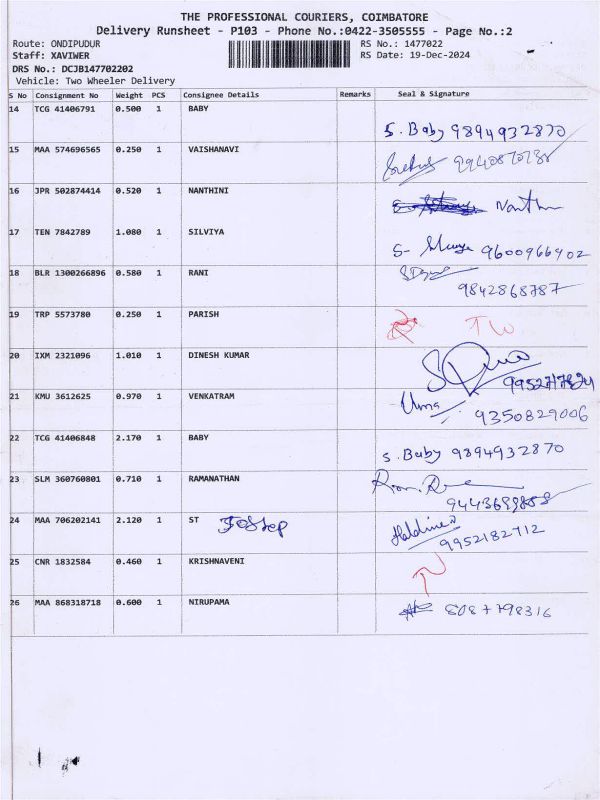 THE PROFESSIONAL COURIERS, COIMBATORE
Delivery Runsheet - P103 - Phone No.:0422-3505555 - Page No.:2
Route: ONDIPUDUR RS No.: 1477022
Staff: XAVIWER RS Date: 19-Dec-2024
DRS No.: DCJB147702202
Vehicle: Two Wheeler Delivery
S No Consignment No Weight PCS Consignee Details Remarks Seal & Signature
14 TCG 41406791 0.500 1 BABY
S. Baby 9894932870
15 MAA 574696565 0.250 1 VAISHANAVI
16 JPR 502874414 0.520 1 NANTHINI
17 TEN 7842789 1.080 1 SILVIYA
9600966902
18 BLR 1300266896 0.580 1 RANI
9842868787
19 TRP 5573780 0.250 1 PARISH
20 IXM 2321096 1.010 1 DINESH KUMAR
21 KMU 3612625 0.970 1 VENKATRAM
Uma 9350829006
22 TCG 41406848 2.170 1 BABY
S. Baby 9894932870
23 SLM 360760801 0.710 1 RAMANATHAN
24 MAA 706202141 2.120 1 ST
9952182712
25 CNR 1832584 0.460 1 KRISHNAVENI
26 MAA 868318718 0.600 1 NIRUPAMA